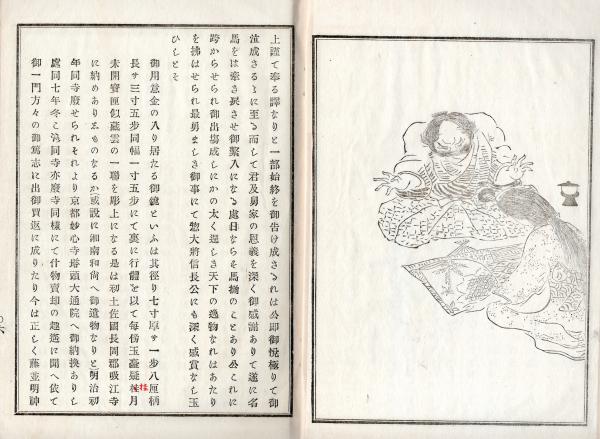 上謹て奉る譯なりと一部始終を御告け成さるれは公即御悦極りて御
泣成さるゝに至る而して君及勇家の恩義を深く御感謝ありて遂に名
馬をは牽き戻させ御繋入になる處日ならす馬揃のことあり公これに
跨からせられ御出場成しにかの太く逞しき天下の逸物なれはあたり
を拂はせられ最勇ましき御事にて惣大將信長公にも深く感賞なし玉
ひしとそ
御用意金の入り居たる御鏡といふは其徑り七寸厚サ一步八厘柄
長サ三寸五步同幅一寸五步にて裏に行體を以て每傍玉臺疑桂月
未開寶匣似藏雲の一聯を彫上になる是は初土佐國長岡郡吸江寺
に納めありゑものなるか或說に湘南和尚へ御遺物なりと明治初
年同寺廢せられそれより京都妙心寺塔頭大通院へ御納換ありし
處同七年冬こ遙同寺亦廢寺同樣にて什物賣却の趣遙に聞へ依て
御一門方々の御篤志に出御買返に成りたり今は正しく藤並明神
桂
六